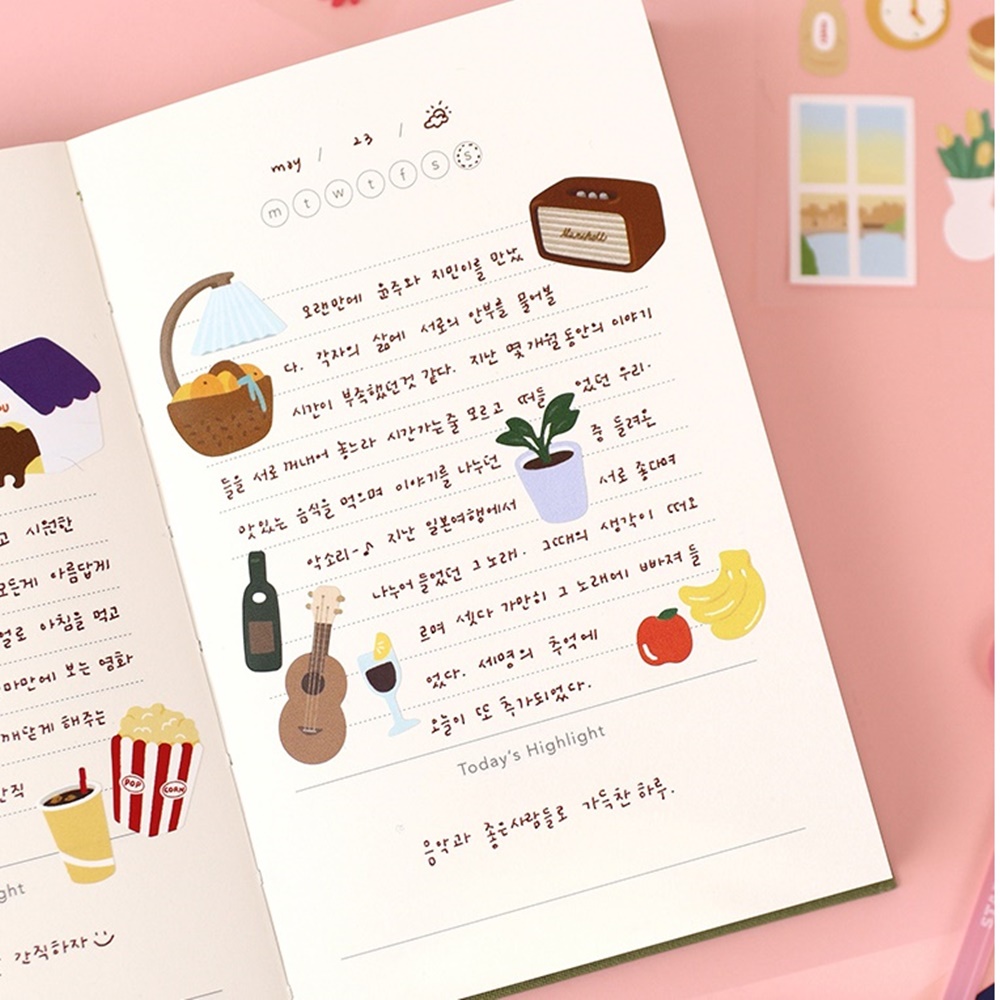 고 시원한
모든게 아름답게
얼로 아침을 먹고
마만에 보는 영화
깨닫게 해주는
간직
POP CORN
ght
간직하자
may / 23 /
m t w t f s s
Marshall
오랜만에 윤주와 지민이를 만났
다. 각자의 삶에 서로의 안부를 물어볼
시간이 부족했던것 같다. 지난 몇개월동안의 이야기
들을 서로 꺼내어 놓느라 시간가는줄 모르고 떠들었던 우리.
맛있는 음식을 먹으며 이야기를 나누던 중 들려온
악소리~♪ 지난 일본여행에서 서로 좋다며
나누어 들었던 그 노래. 그때의 생각이 떠오
르며 셋다 가만히 그 노래에 빠져 들
었다. 세명의 추억에
오늘이 또 추가되었다.
Today's Highlight
음악과 좋은사람들로 가득찬 하루.